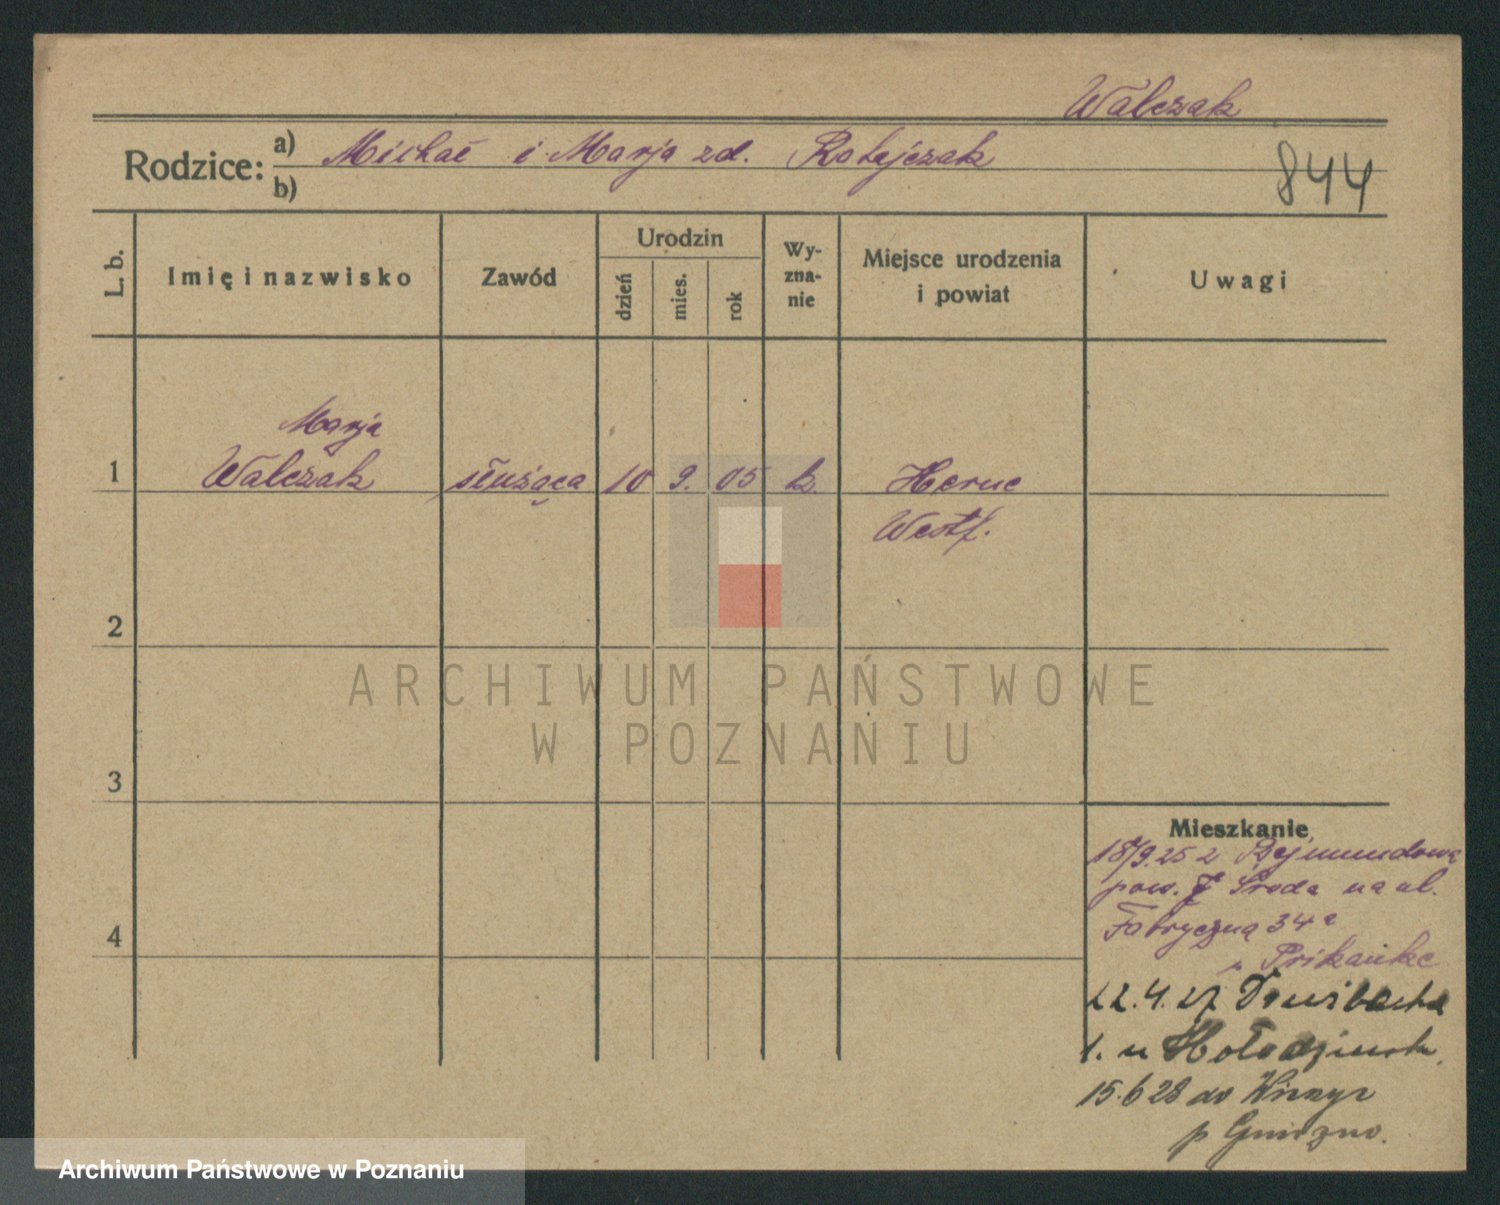 Walczak
Rodzice: a) Michał i Marja zd. Ratajczak
b)
844
L. b.
Imię i nazwisko
Zawód
Urodzin
dzień
mies.
rok
Wy-
zna-
nie
Miejsce urodzenia
i powiat
Uwagi
Marja
1 Walczak służąca 10 9. 05 k. Herne
Westf.
2
3
4
Mieszkanie
18/9.25 z
pow. Środa na ul.
Fabryczną 34a
22.4.27
1. u
15.6 28 do
p Gniezno.
ARCHIWUM PAŃSTWOWE
W POZNANIU
Archiwum Państwowe w Poznaniu